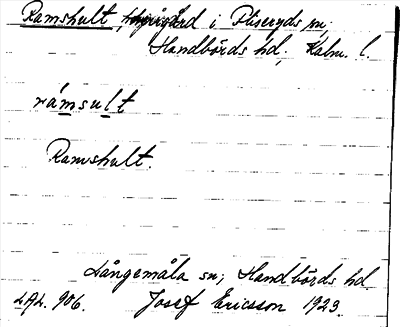 Ramshult, i Fliseryds sn,
Handbörds hd, Kalm. l.
rámsult
Ramshult.
Långemåla sn; Handbörds hd.
LAL. 906. Josef Ericsson 1923.